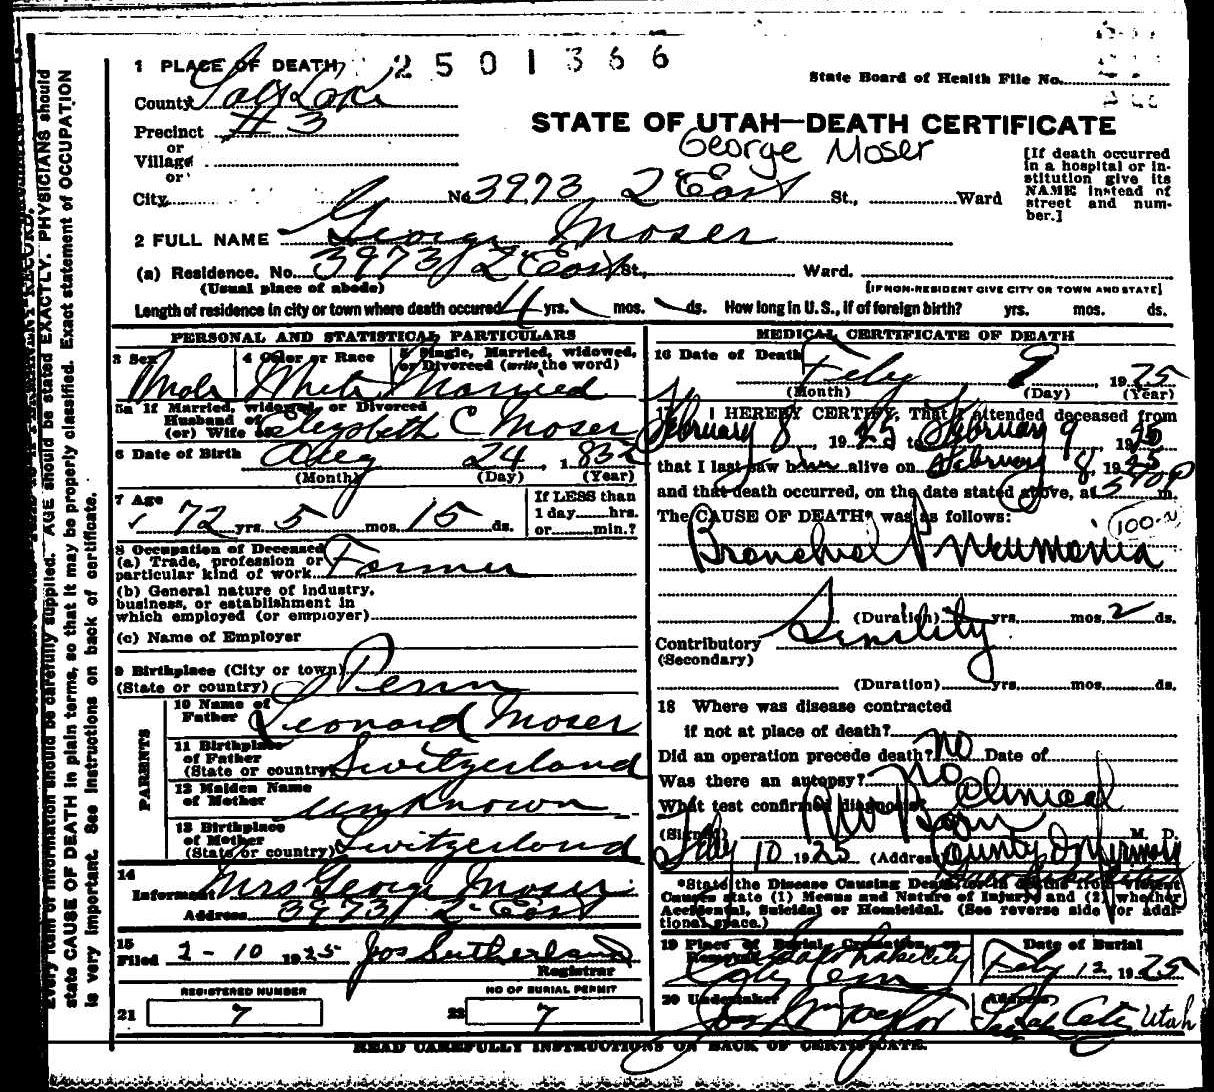 1 PLACE OF DEATH 2501366
State Board of Health File No.
County Salt Lake
Precinct #3
or
Village
or
STATE OF UTAH—DEATH CERTIFICATE
George Moser
[If death occurred in a hospital or institution give its NAME instead of street and number.]
City No 3973 2 East St., Ward
2 FULL NAME George Moser
(a) Residence. No. 3973 2 East St., Ward.
(Usual place of abode) [IF NON-RESIDENT GIVE CITY OR TOWN AND STATE]
Length of residence in city or town where death occurred 4 yrs. mos. ds. How long in U. S., if of foreign birth? yrs. mos. ds.
PERSONAL AND STATISTICAL PARTICULARS
3 Sex Male
4 Color or Race White
5 Single, Married, widowed, or Divorced (write the word) Married
5a If Married, widowed, or Divorced
Husband of
(or) Wife of Elizabeth C Moser
6 Date of Birth Aug 24, 1852
(Month) (Day) (Year)
7 Age 72 yrs. 5 mos. 15 ds.
If LESS than
1 day hrs.
or min.?
8 Occupation of Deceased
(a) Trade, profession or
particular kind of work Farmer
(b) General nature of industry,
business, or establishment in
which employed (or employer)
(c) Name of Employer
9 Birthplace (City or town)
(State or country) Penn
PARENTS
10 Name of Father Leonard Moser
11 Birthplace of Father
(State or country) Switzerland
12 Maiden Name of Mother unknown
13 Birthplace of Mother
(State or country) Switzerland
14
Informant Mrs George Moser
Address 3973 2 East
15
Filed 2-10 1925 Jos Sutherland
Registrar
REGISTERED NUMBER
21 7
NO OF BURIAL PERMIT
22 7
MEDICAL CERTIFICATE OF DEATH
16 Date of Death Feby 9 1925
(Month) (Day) (Year)
17 I HEREBY CERTIFY, That I attended deceased from
February 8, 1925 to February 9 1925
that I last saw him alive on February 8, 1925
and that death occurred, on the date stated above, at m.
The CAUSE OF DEATH* was as follows:
Bronchial Pneumonia
(Duration) yrs. mos. 2 ds.
Contributory Senility
(Secondary)
(Duration) yrs. mos. ds.
18 Where was disease contracted
if not at place of death?
Did an operation precede death? no Date of
Was there an autopsy? no
What test confirmed diagnosis? Clinical
(Signed) M. D.
Feby 10 1925 (Address) County Infirmary
Salt Lake City
*State the Disease Causing Death, or in deaths from Violent
Causes state (1) Means and Nature of Injury; and (2) whether
Accidental, Suicidal or Homicidal. (See reverse side for additional space.)
19 Place of Burial, Cremation, or Removal Salt Lake City
City Cem
Date of Burial
Feby 12, 1925
20 Undertaker Jos Wm Taylor
Address Salt Lake City Utah
READ CAREFULLY INSTRUCTIONS ON BACK OF CERTIFICATE.
Every item of information should be carefully supplied. AGE should be stated EXACTLY. PHYSICIANS should
state CAUSE OF DEATH in plain terms, so that it may be properly classified. Exact statement of OCCUPATION
is very important. See instructions on back of certificate.